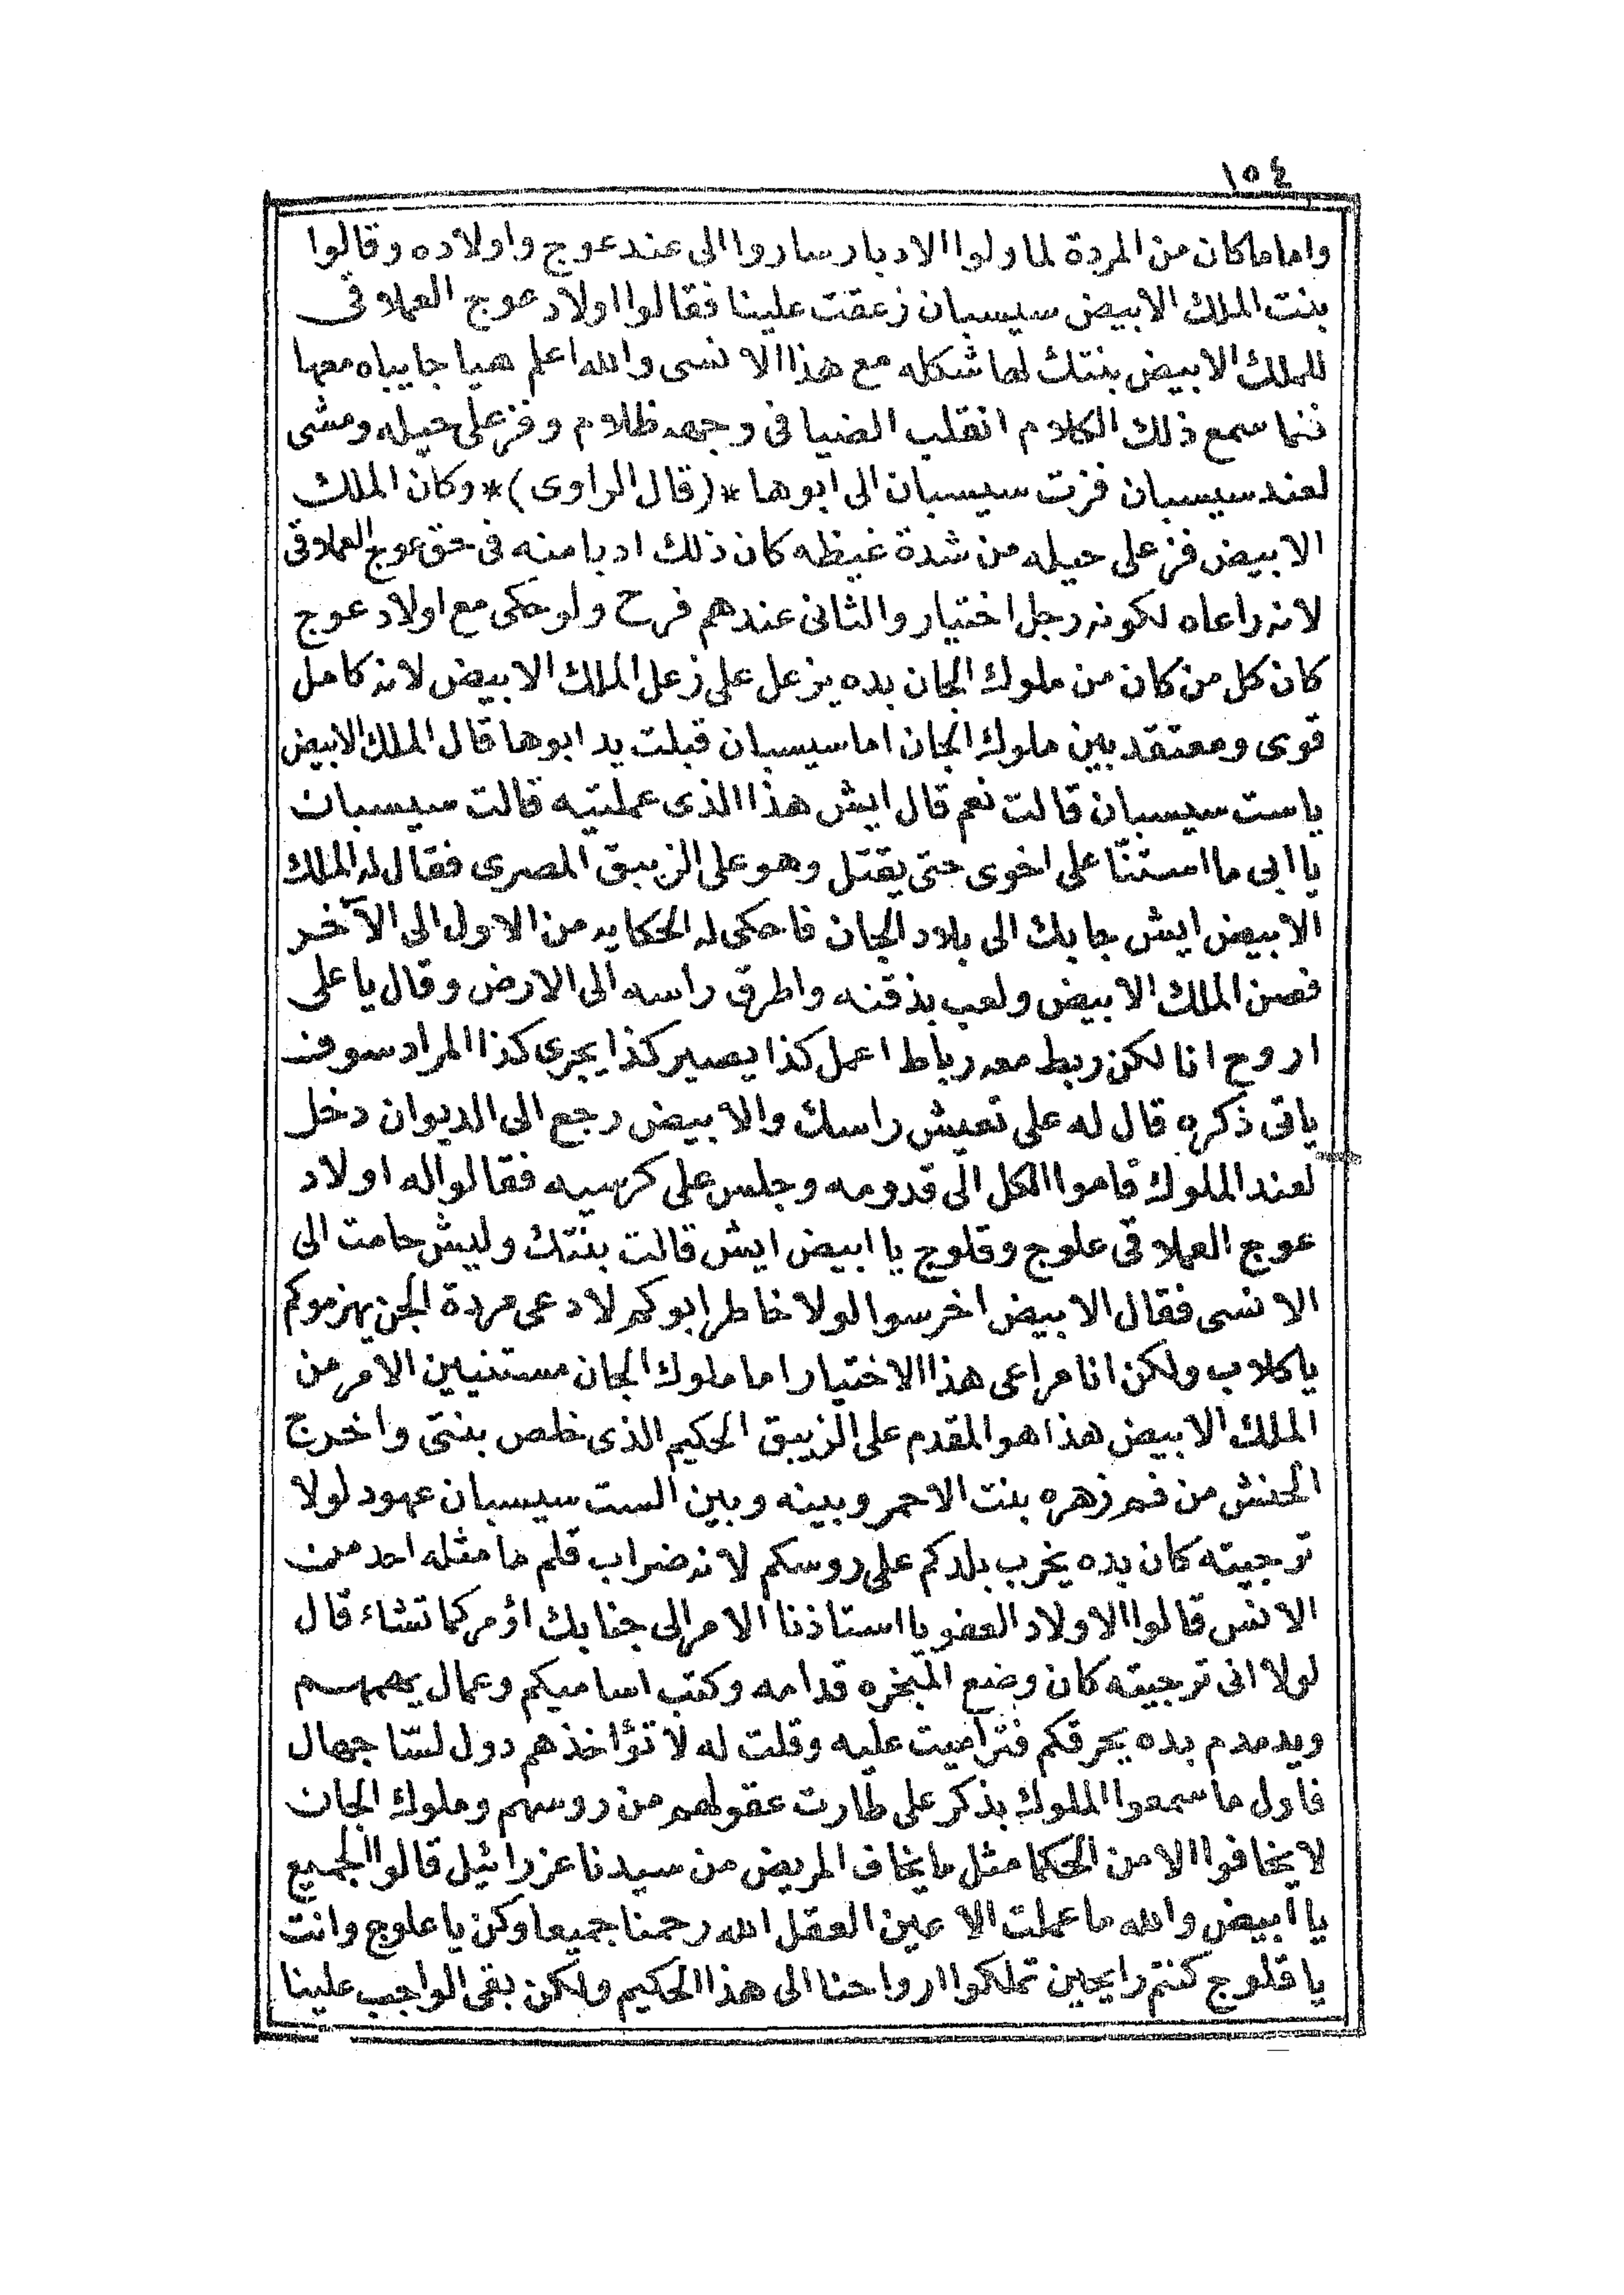 ١٥٤
واما ماكان من المردة لما ولوا الادبار ساروا الى عند عوج واولاده وقالوا
بنت الملك الابيض سيسبان زعقت علينا فقالوا اولاد عوج العملاقى
للملك الابيض بنتك لها شكله مع هذا الانسى والله اعلم هيا جايباه معها
فما سمع ذلك الكلام انقلب الضيا فى وجهه ظلام وفز على حيله ومشى
لعند سيسبان فزت سيسبان الى ابوها *(قال الراوى)* وكان الملك
الابيض فز على حيله من شدة غيظه كان ذلك ادبا منه فى حق عوج العملاقى
لانه راعاه لكونه رجل اختيار والثانى عندهم فرح ولو حكى مع اولاد عوج
كان كل من كان من ملوك الجان بده يزعل على زعل الملك الابيض لانه كامل
قوى ومعتقد بين ملوك الجان اما سيسبان قبلت يد ابوها قال الملك الابيض
ياست سيسبان قالت نعم قال ايش هذا الذى عملتيه قالت سيسبان
يا ابى ما استنّا على اخوى حتى يقتل وهو على الزيبق المصرى فقال له الملك
الابيض ايش جابك الى بلاد الجان فاحكى له الحكايه من الاول الى الآخر
فصن الملك الابيض ولعب بذقنه واطرق راسه الى الارض وقال يا على
اروح انا لكن ربط معه رباط اعمل كذا يصير كذا يجرى كذا المراد سوف
ياتى ذكره قال له على تعيش راسك والابيض رجع الى الديوان دخل
لعند الملوك قاموا الكل الى قدومه وجلس على كرسيه فقالوا له اولاد
عوج العملاقى علوج وقلوج يا ابيض ايش قالت بنتك وليش حامت الى
الانسى فقال الابيض اخرسوا لولا خاطر ابوكم لادعى مردة الجن يهزموكم
ياكلاب ولكن انا مراعى هذا الاختيار اما ملوك الجان مستنيين الامر من
الملك الابيض هذا هو المقدم على الزيبق الحكيم الذى خلص بنتى واخرج
الحنش من فم زهره بنت الاحمر وبينه وبين الست سيسبان عهود لولا
ترجيته كان بده يخرب بلدكم على روسكم لانه ضراب قلم ما مثله احد من
الانس قالوا الاولاد العفو يا استاذنا الامر الى جنابك اؤمر كما تشاء قال
لولا انى ترجيته كان وضع المبخره قدامه وكتب اساميكم وعمال يهمهم
ويدمدم بده يحرقكم فتراميت عليه وقلت له لا تؤاخذهم دول لسّا جهال
فاول ما سمعوا الملوك بذكر على طارت عقولهم من روسهم وملوك الجان
لا يخافوا الا من الحكما مثل ما يخاف المريض من سيدنا عزرائيل قالوا الجميع
يا ابيض والله ما عملت الا عين العقل الله رحمنا جميعا وكن يا علوج وانت
يا قلوج كنتم رايحين تملكوا ارواحنا الى هذا الحكيم ولكن بقى الواجب علينا